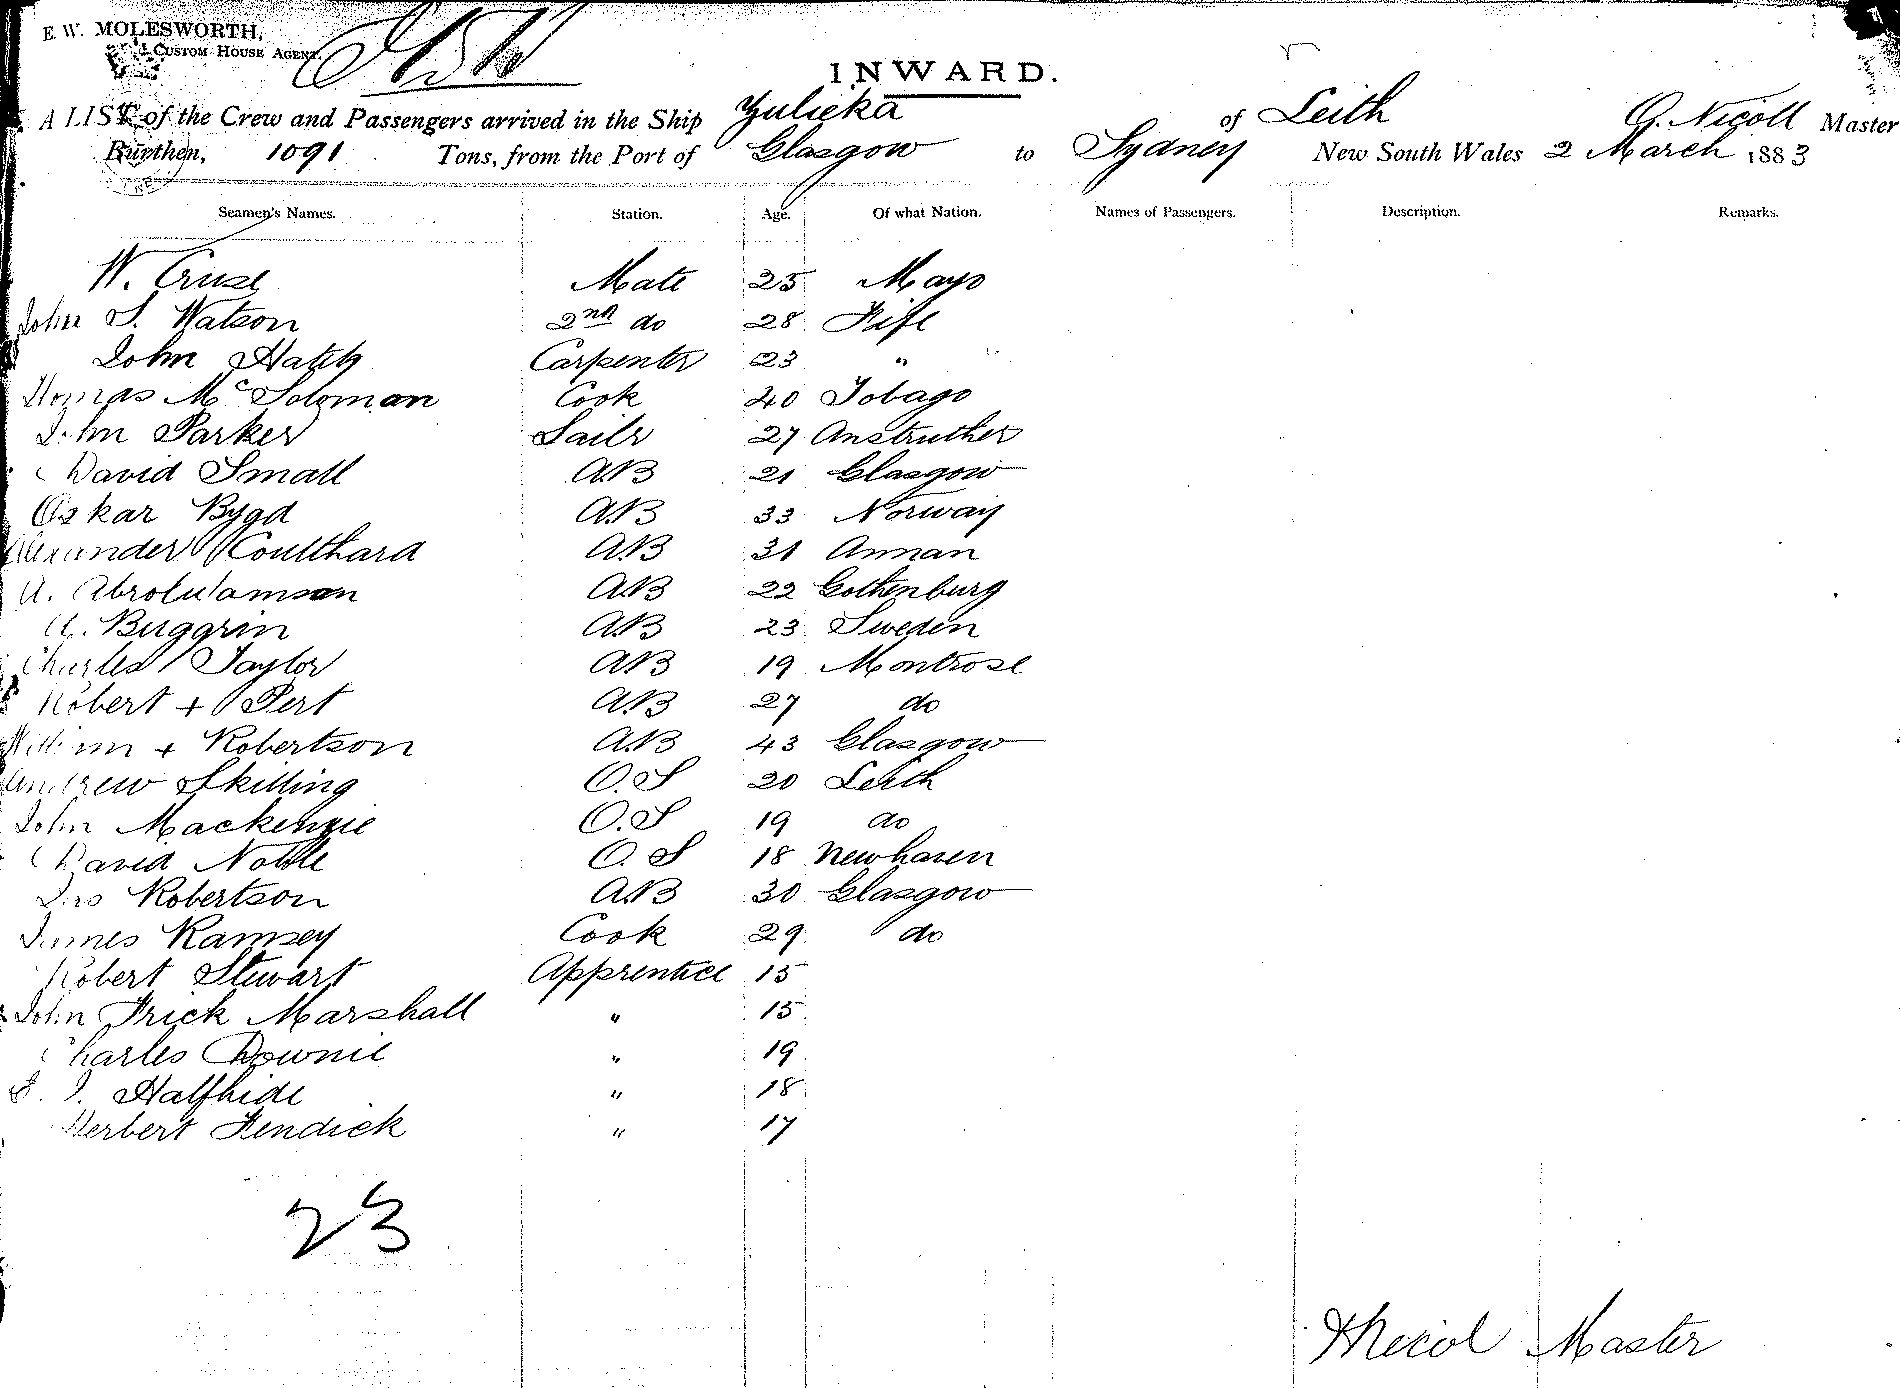 E. W. MOLESWORTH,
CUSTOM HOUSE AGENT.
INWARD.
A LIST of the Crew and Passengers arrived in the Ship Zulieka of Leith G. Nicoll Master
Burthen, 1091 Tons, from the Port of Glasgow to Sydney New South Wales 2 March 1883
Seamen's Names. Station. Age. Of what Nation. Names of Passengers. Description. Remarks.
W. Cruse Mate 25 Mayo
John S. Watson 2nd do 28 Fife
John Hatch Carpenter 23 "
Thomas Mc Soloman Cook 40 Tobago
John Parker Sailr 27 Anstruther
David Small A.B 21 Glasgow
Oskar Bygd A.B 33 Norway
Alexander Coulthard A.B 31 Annan
A. A.B 22 Gothenburg
A. Buggrin A.B 23 Sweden
Charles Taylor A.B 19 Montrose
Robert + Pert A.B 27 do
William + Robertson A.B 43 Glasgow
Andrew Skilling O.S 20 Leith
John Mackenzie O.S 19 do
David Noble O.S 18 Newhaven
Jas Robertson A.B 30 Glasgow
James Ramsey Cook 29 do
Robert Stewart Apprentice 15
John Frick Marshall " 15
Charles Downie " 19
E. J. Halfhide " 18
Herbert Kendick " 17
23
Nicol Master